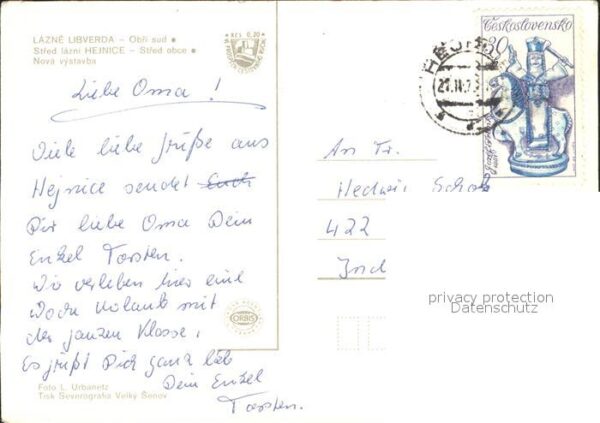 LÁZNĚ LIBVERDA – Obří sud •
Střed lázní HEJNICE – Střed obce •
Nová výstavba
Kčs 0,20
Liebe Oma!
Viele liebe Grüße aus
Hejnice sendet Euch
Dir liebe Oma Dein
Enkel Torsten.
Wir verleben hier eine
Woche Urlaub mit
der ganzen Klasse.
Es grüßt Dich ganz lieb
Dein Enkel
Torsten.
Foto L. Urbanetz
Tisk Severografia Velký Šenov
ORBIS
Československo
30
HEJNI
27.11.7
An Fr.
Hedwig
422
privacy protection
Datenschutz